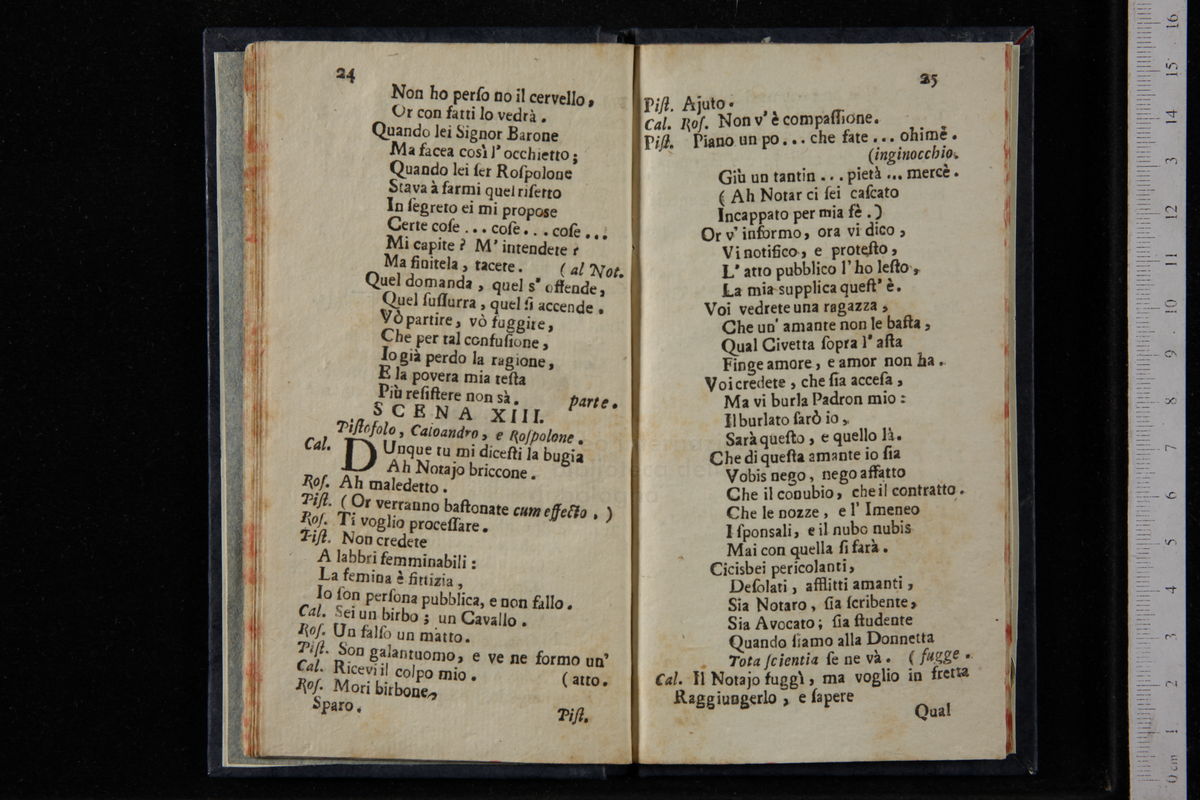 24
Non ho perſo no il cervello,
Or con fatti lo vedrà.
Quando lei Signor Barone
Ma facea così l'occhietto;
Quando lei ſer Roſpolone
Stava à farmi quel riſetto
In ſegreto ei mi propose
Certe coſe ... coſe... coſe...
Mi capite? M'intendete?
Ma finitela, tacete. (al Not.
Quel domanda, quel s'offende,
Quel ſuſſurra, quel ſi accende.
Vò partire, vò fuggire,
Che per tal confuſione,
Io già perdo la ragione,
E la povera mia teſta
Più reſiſtere non sà. parte.
SCENA XIII.
Piſtofolo, Caloandro, e Roſpolone.
Cal. DUnque tu mi diceſti la bugia
Ah Notajo briccone.
Roſ. Ah maledetto.
Piſt. (Or verranno baſtonate cum effecto.)
Roſ. Ti voglio proceſſare.
Piſt. Non credete
A labbri femminabili:
La femina è fittizia,
Io ſon perſona pubblica, e non fallo.
Cal. Sei un birbo; un Cavallo.
Roſ. Un falſo un matto.
Piſt. Son galantuomo, e ve ne formo un'
Cal. Ricevi il colpo mio. (atto.
Roſ. Mori birbone,
Sparo.
Piſt.
25
Piſt. Ajuto.
Cal. Roſ. Non v'è compaſſione.
Piſt. Piano un po... che fate... ohimè.
(inginocchio.
Giù un tantin... pietà... mercè.
(Ah Notar ci ſei caſcato
Incappato per mia fè.)
Or v'informo, ora vi dico,
Vi notifico, e proteſto,
L'atto pubblico l'ho leſto,
La mia supplica queſt'è.
Voi vedrete una ragazza,
Che un'amante non le baſta,
Qual Civetta ſopra l'aſta
Finge amore, e amor non ha.
Voi credete, che ſia acceſa,
Ma vi burla Padron mio:
Il burlato ſarò io,
Sarà queſto, e quello là.
Che di queſta amante io ſia
Vobis nego, nego affatto
Che il conubio, che il contratto.
Che le nozze, e l'Imeneo
I ſponsali, e il nubo nubis
Mai con quella ſi farà.
Cicisbei pericolanti,
Deſolati, afflitti amanti,
Sia Notaro, ſia ſcribente,
Sia Avocato; ſia ſtudente
Quando ſiamo alla Donnetta
Tota ſcientia ſe ne và. (fugge.
Cal. Il Notajo fuggì, ma voglio in fretta
Raggiungerlo, e ſapere
Qual
0 cm 1 2 3 4 5 6 7 8 9 10 11 12 13 14 15 16